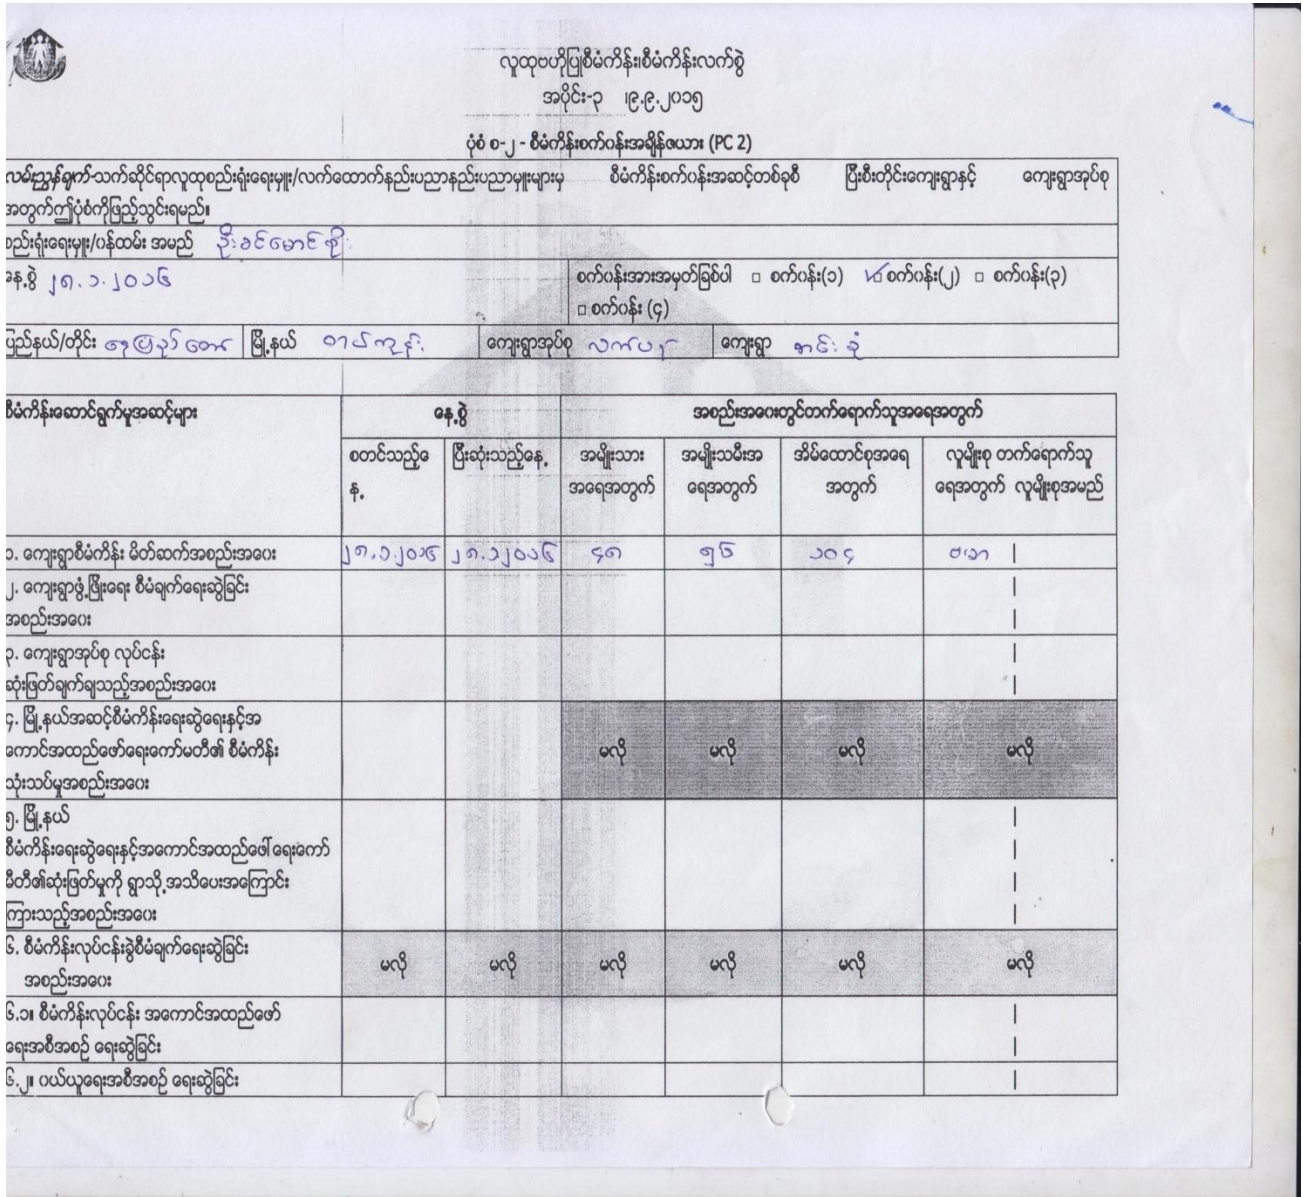 လူထုဗဟိုပြုစီမံကိန်း၊စီမံကိန်းလက်စွဲ
အပိုင်း-၃ ၊၉.၉.၂၀၁၅
ပုံစံ စ-၂ - စီမံကိန်းစက်ဝန်းအချိန်ဇယား (PC 2)
လမ်းညွှန်ချက်-သက်ဆိုင်ရာလူထုစည်းရုံးရေးမှူး/လက်ထောက်နည်းပညာနည်းပညာမှူးများမှ စီမံကိန်းစက်ဝန်းအဆင့်တစ်ခုစီ ပြီးစီးတိုင်းကျေးရွာနှင့် ကျေးရွာအုပ်စု
အတွက်ဤပုံစံကိုဖြည့်သွင်းရမည်။
စည်းရုံးရေးမှူး/ဝန်ထမ်း အမည် ဦးခင်မောင်စိုး
နေ့စွဲ ၂၈.၁.၂၀၁၆ စက်ဝန်းအားအမှတ်ခြစ်ပါ □ စက်ဝန်း(၁) ☑ စက်ဝန်း(၂) □ စက်ဝန်း(၃)
□ စက်ဝန်း (၄)
ပြည်နယ်/တိုင်း နေပြည်တော် မြို့နယ် တပ်ကုန်း ကျေးရွာအုပ်စု ကျေးရွာ
စီမံကိန်းဆောင်ရွက်မှုအဆင့်များ နေ့စွဲ အစည်းအဝေးတွင်တက်ရောက်သူအရေအတွက်
စတင်သည့်နေ့ ပြီးဆုံးသည့်နေ့ အမျိုးသား အမျိုးသမီးအ အိမ်ထောင်စုအရေ လူမျိုးစု တက်ရောက်သူ
အရေအတွက် ရေအတွက် အတွက် ရေအတွက် လူမျိုးစုအမည်
၁. ကျေးရွာစီမံကိန်း မိတ်ဆက်အစည်းအဝေး ၂၈.၁.၂၀၁၆ ၂၈.၁.၂၀၁၆ ၄၈ ၅၆ ၁၀၄ ဗမာ |
၂. ကျေးရွာဖွံ့ဖြိုးရေး စီမံချက်ရေးဆွဲခြင်း
အစည်းအဝေး |
၃. ကျေးရွာအုပ်စု လုပ်ငန်း |
ဆုံးဖြတ်ချက်ချသည့်အစည်းအဝေး |
၄. မြို့နယ်အဆင့်စီမံကိန်းရေးဆွဲရေးနှင့်အ
ကောင်အထည်ဖော်ရေးကော်မတီ၏ စီမံကိန်း မလို မလို မလို မလို
သုံးသပ်မှုအစည်းအဝေး
၅. မြို့နယ် |
စီမံကိန်းရေးဆွဲရေးနှင့်အကောင်အထည်ဖေါ်ရေးကော် |
မီတီ၏ဆုံးဖြတ်မှုကို ရွာသို့အသိပေးအကြောင်း |
ကြားသည့်အစည်းအဝေး |
၆. စီမံကိန်းလုပ်ငန်းခွဲစီမံချက်ရေးဆွဲခြင်း
အစည်းအဝေး မလို မလို မလို မလို မလို မလို
၆.၁။ စီမံကိန်းလုပ်ငန်း အကောင်အထည်ဖော် |
ရေးအစီအစဉ် ရေးဆွဲခြင်း |
၆.၂။ ဝယ်ယူရေးအစီအစဉ် ရေးဆွဲခြင်း |